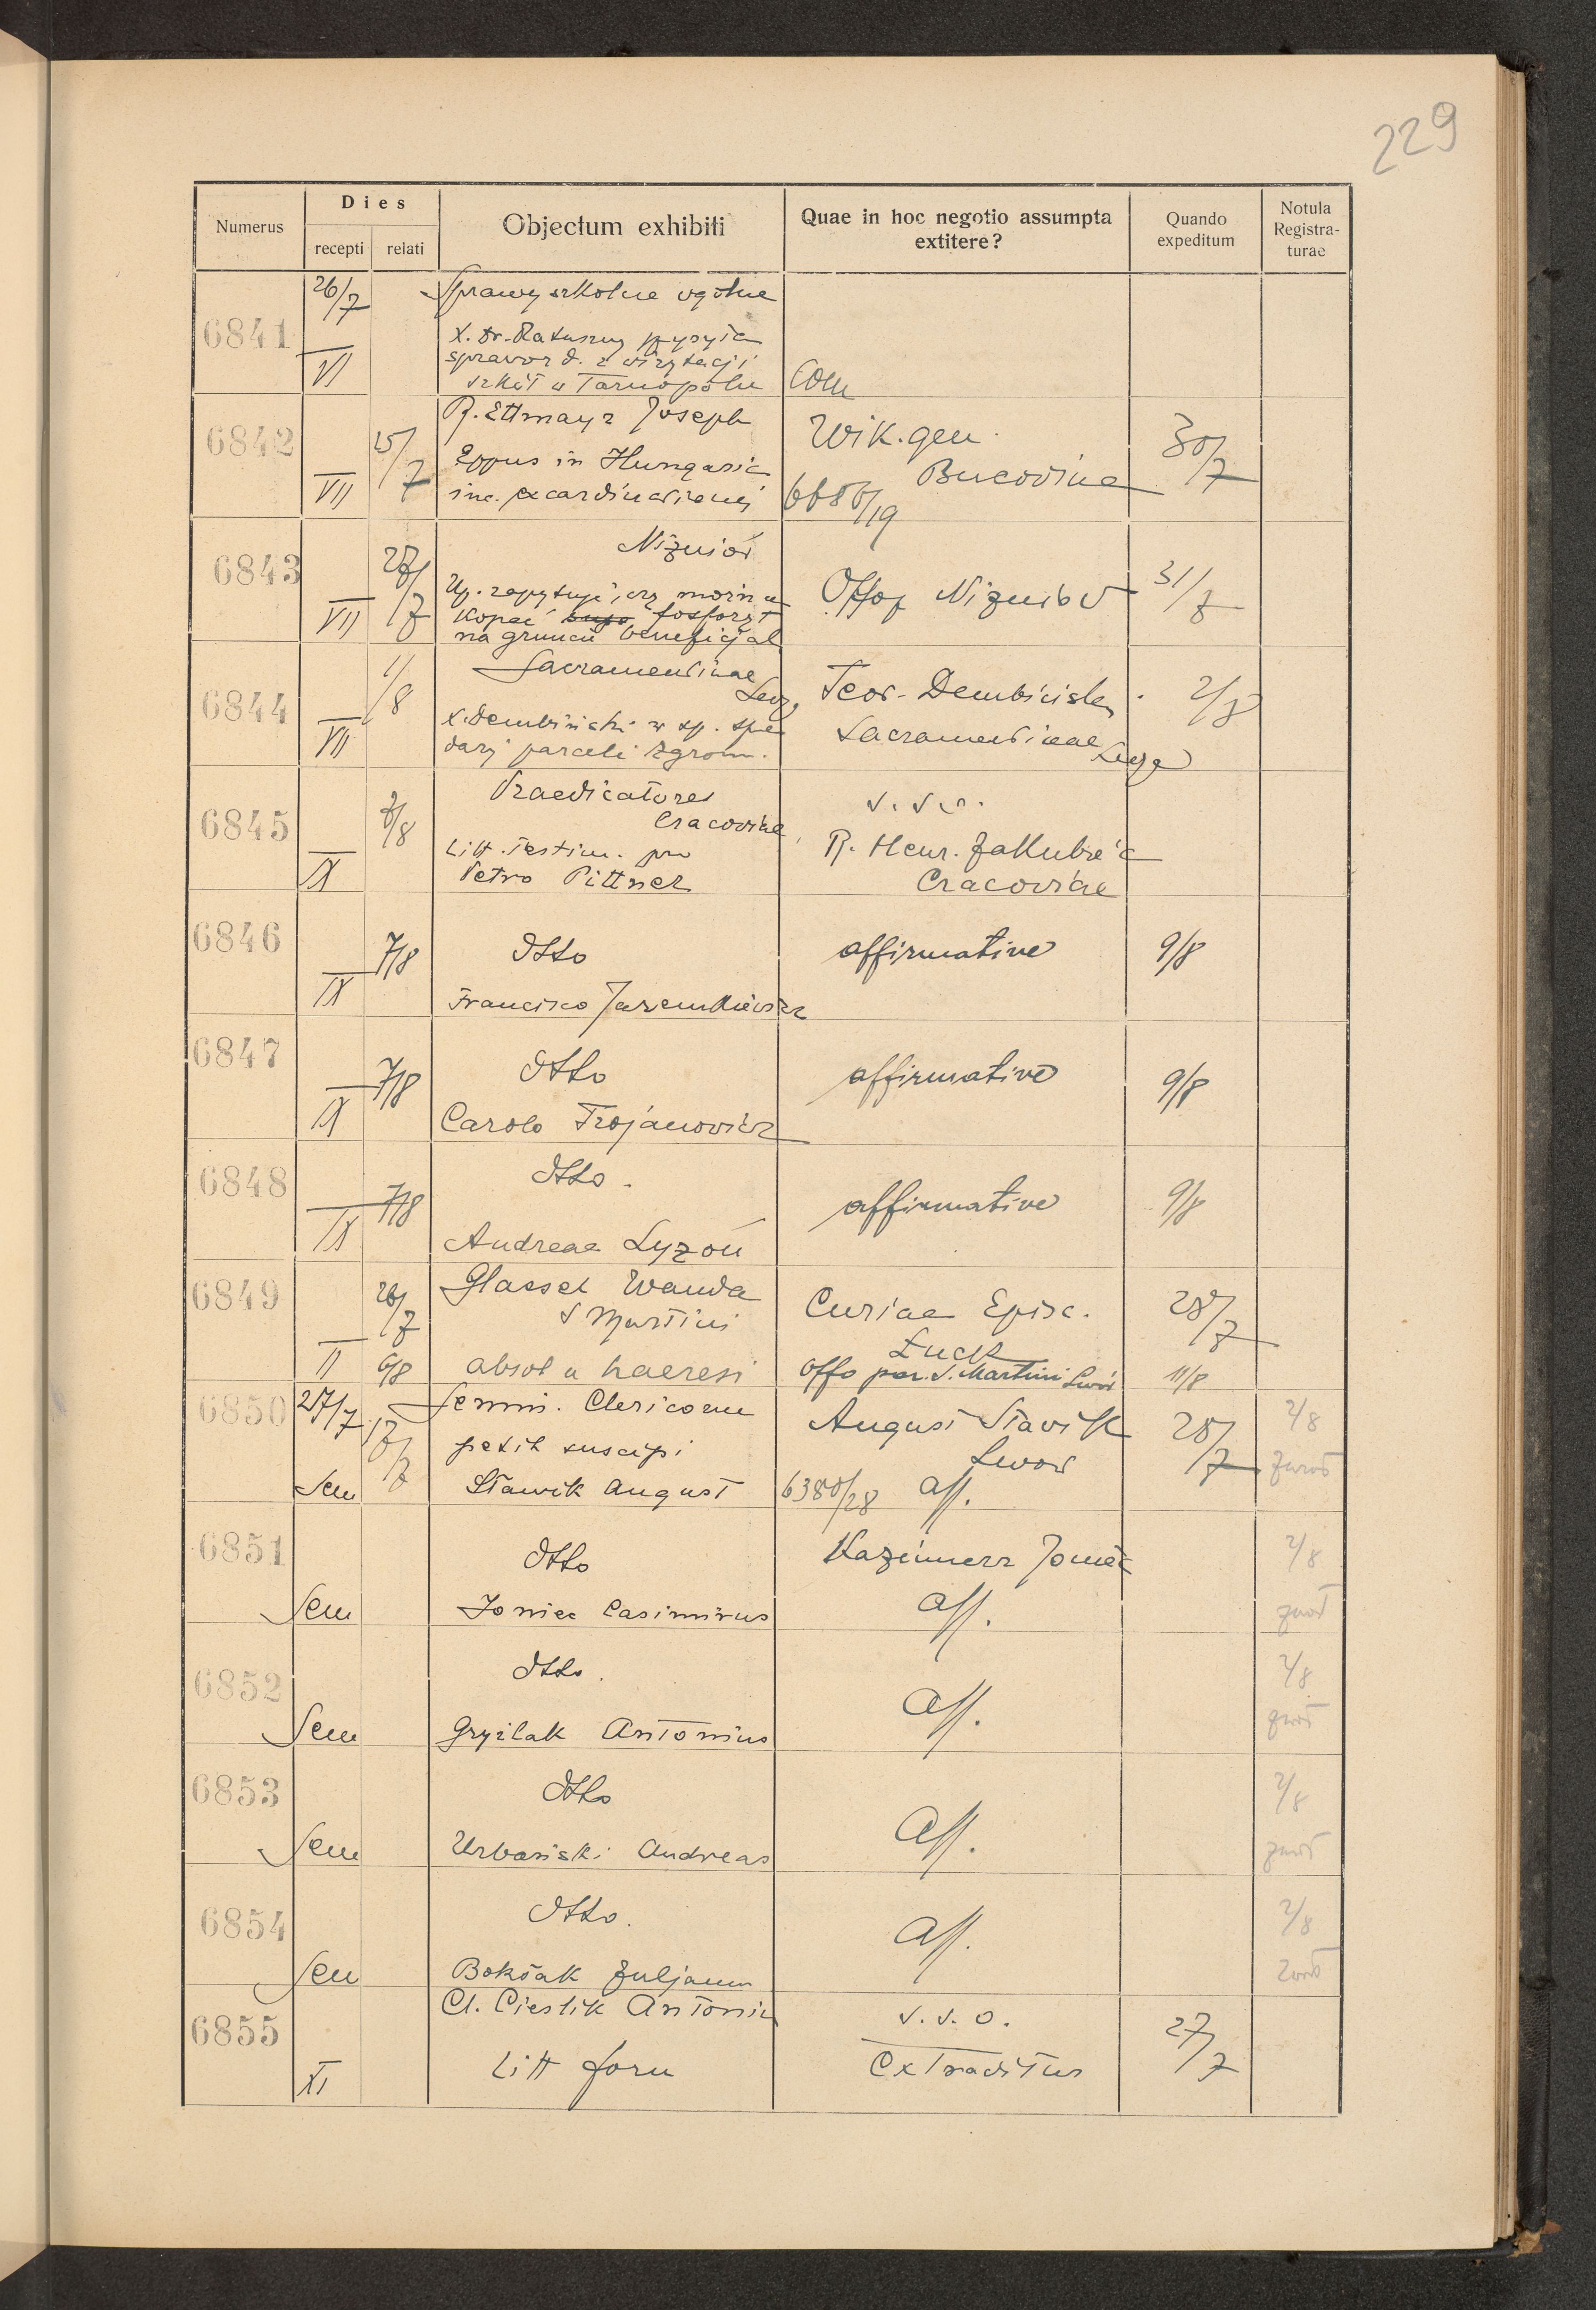 229
Numerus
Dies
recepti relati
Objectum exhibiti
Quae in hoc negotio assumpta
extitere?
Quando
expeditum
Notula
Registra-
turae
6841
26/7
VI
Sprawy szkolne ogólne
X. Dr. Ratuszny
sprawozd. z wizytacji
szkół w Tarnopolu
6842
VII
R. Ettmayr Joseph
Eppus in Hungaria
Wik. gen.
Bucovina
30/7
6843
VII
Niżniów
Up. zapytuje, czy można
kopać fosforyt
na gruncie beneficjal
Offoz Niżniów
31/7
6844
VII
1/8
Sacramentinae
X. Dembiński w sp. sprze
daży parceli zgrom.
Sacramentinae
2/8
6845
IX
Praedicatores
Cracoviae
Litt. testim. pro
Petro Pittner
R. Henr. Jakubiec
Cracoviae
6846
IX
7/8
dtto
Francisco Jaremkiewicz
affirmative
9/8
6847
IX
7/8
dtto
Carolo Trojanowicz
affirmative
9/8
6848
IX
7/8
dtto.
Andreae Lyzoń
affirmative
9/8
6849
II
26/7
6/8
Glasset Wanda
S Martini
absol a haeresi
Curiae Episc.
Łuck
Offo par. S. Martini Lwów
28/7
11/8
6850
27/7
Sem
Semin. Clericorum
petit suscipi
Sławik August
August Sławik
Lwów
6380/28 aff.
28/7
2/8
6851
Sem
dtto
Joniec Casimirus
Kazimierz Joniec
aff.
2/8
6852
Sem
dtto.
Gryźlak Antonius
Aff.
2/8
6853
Sem
dtto
Urbański Andreas
Aff.
2/8
6854
Sem
dtto.
Bokšak Juljanus
Aff.
2/8
6855
XI
Cl. Cieślik Antoniu
Litt form
v. s. o.
Extraditus
27/7